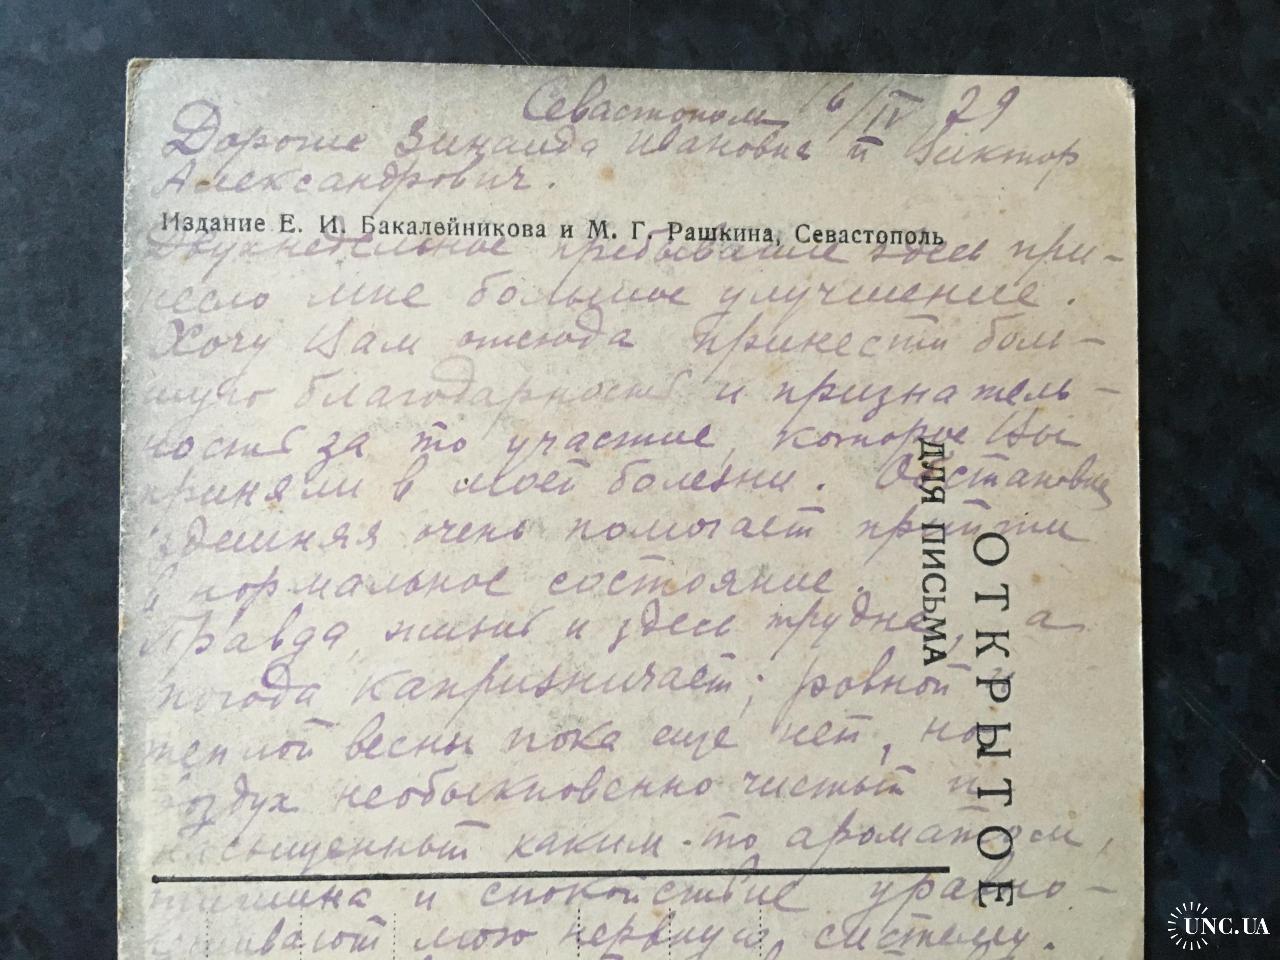 Севастополь 16/IV 29
Дорогие Зинаида Ивановна и Виктор
Александрович.
Издание Е. И. Бакалейникова и М. Г. Рашкина, Севастополь
Двухнедельное пребывание здесь при-
несло мне большое улучшение.
Хочу Вам отсюда принести боль-
шую благодарность и признатель-
ность за то участие, которое Вы
приняли в моей болезни. Обстановка
здешняя очень помогает притти
в нормальное состояние.
Правда, жизнь и здесь трудна, а
погода капризничает; ровной
теплой весны пока еще нет, но
воздух необыкновенно чистый и
насыщенный каким-то ароматом,
тишина и спокойствие уравно-
вешивают мою нервную систему.
ОТКРЫТОЕ
ДЛЯ ПИСЬМА
UNC.UA